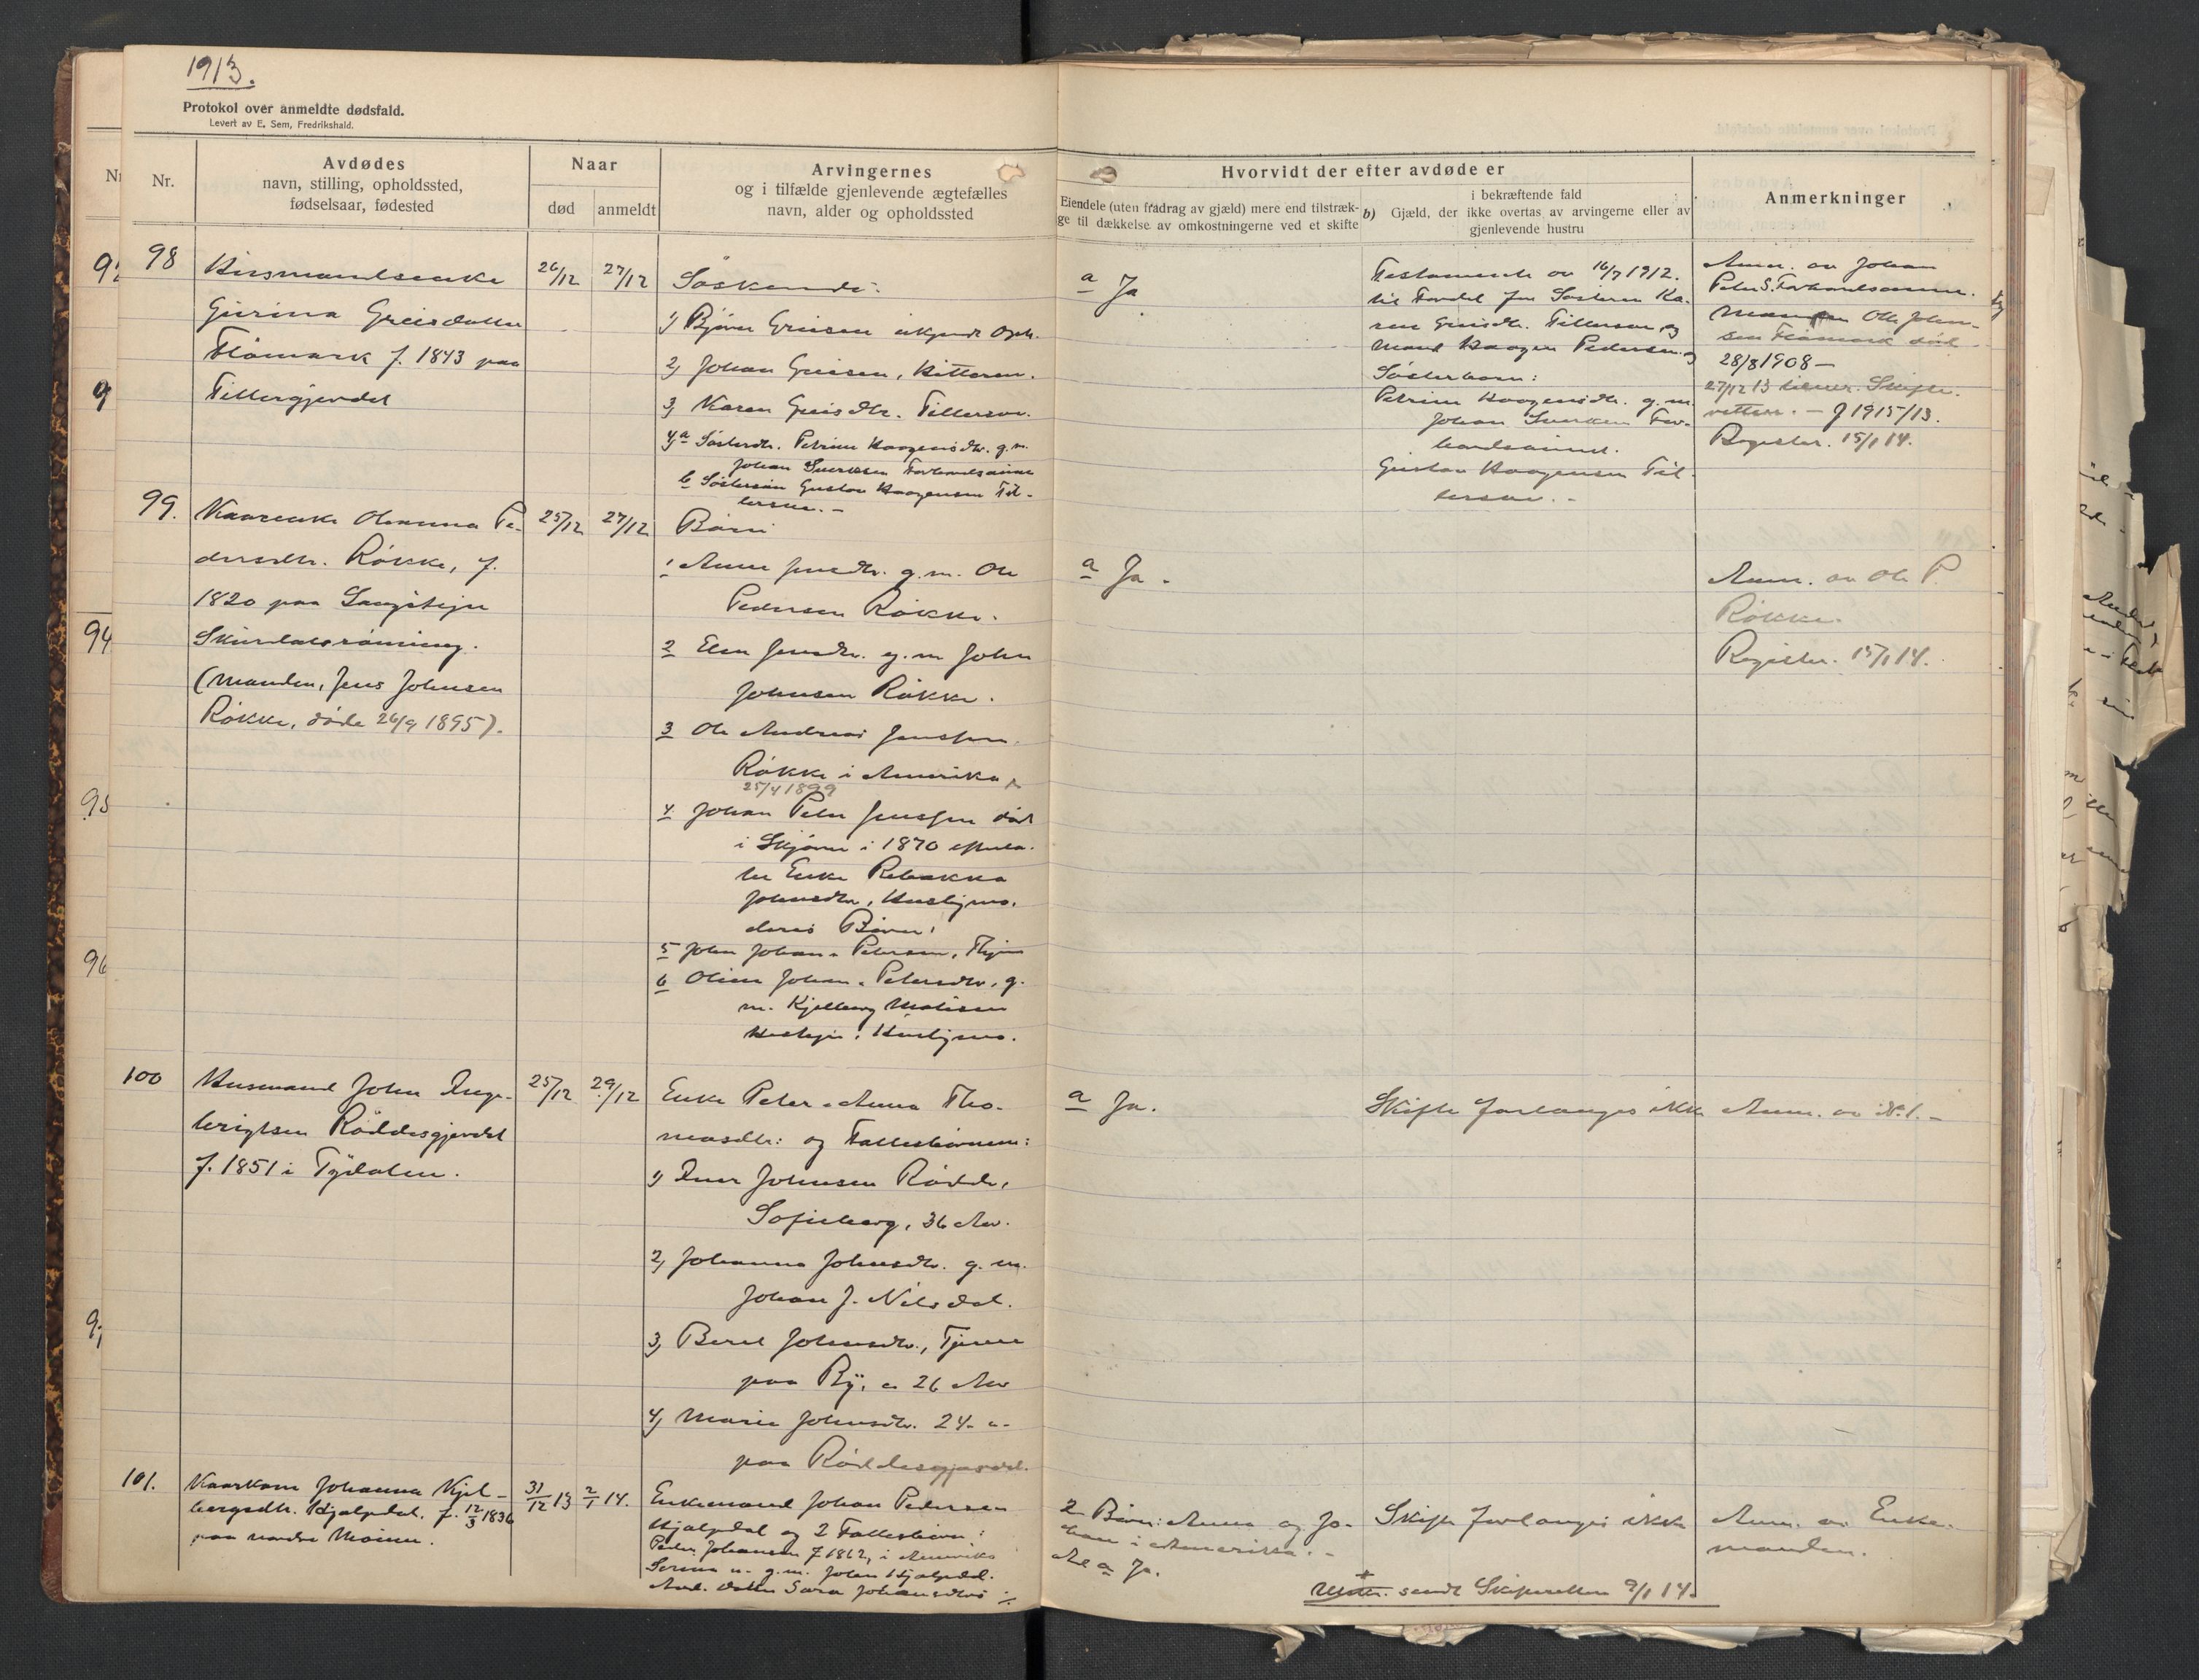 1913.
Protokol over anmeldte dødsfald.
Levert av E. Sem, Fredrikshald.
Nr.
Avdødes
navn, stilling, opholdssted,
fødselsaar, fødested
Naar
død
anmeldt
Arvingernes
og i tilfælde gjenlevende ægtefælles
navn, alder og opholdssted
Hvorvidt der efter avdøde er
Eiendele (uten fradrag av gjæld) mere end tilstræk-
ge til dækkelse av omkostningerne ved et skifte
b) Gjæld, der
i bekræftende fald
ikke overtas av arvingerne eller av
gjenlevende hustru
Anmerkninger
98
Husmandsenke
Gurina Greisdatter
Flömark f. 1843 paa
Tillergjerdet
26/12
27/12
Søskende:
1) Björn Greisen ukjendt Oph.
2) Johan Greisen, Hitteren.
3) Karen Greisdtr. Tillerson.
4) a Søsterdtr. Petrine Haagensdtr. g. m.
Johan
b Søstersøn Gustav Haagensen Til-
a Ja
Testamente av 16/7 1912.
til Fordel for Søsteren Ka-
ren Greisdtr. Tillerson og
Mand Haagen Pedersen og
Søsterbørn:
Petrine Haagensdtr. g. m.
Johan
Gustav Haagensen Til-
Anm. av Johan
Peter S.
Manden Ole John-
sen Flömark död
28/8 1908 –
27/12 13 Skifte-
retten. – J 1915/13.
Register. 15/1 14.
99.
Kaarenke Olianna Pe-
dersdtr. Røkke, f.
1820 paa
(Manden, Jens Johnsen
Røkke, døde 26/9 1895).
25/12
27/12
Børn:
1 Anne Jensdtr. g. m. Ole
Pedersen Røkke.
2 Elen Jensdtr. g. m. John
Johnsen Røkke.
3 Ole Andreas Jenssen
Røkke i Amerika
25/4 1899
4 Johan Peter Jenssen död
i i 1870 efterla-
ter Enke Rebekka
Johnsdtr,
deres Börn:
5 John Johan-Petersen,
6 Oline Johan-Petersdtr, g.
m. Kjelberg
a Ja.
Anm. av Ole P.
Røkke.
Register. 15/1 14.
100
Husmand John Inge-
brigtsen Röddesgjerdet
f. 1851 i Tydalen.
25/12
29/12
Enke Peter-Anna Tho-
masdtr: og Fællesbörnene:
1) Johnsen Rødde,
Sofieberg, 36 Aar.
2) Johanna Johnsdtr. g. m.
Johan J. Nilsdal.
3) Beret Johnsdtr., Tjener
paa By, 26 Aar
4) Marie Johnsdtr. 24
paa Röddesgjerdet.
a Ja.
Skifte forlanges ikke
Anm. av N: 1. –
101.
Kaarkone Johanna Kjel-
bergsdtr. Hjalpdal. f. 12/3 1836
paa nordre
31/12 13
2/1 14.
Enkemand Johan Pedersen
Hjalpdal og 2 Fællesbörn:
Peder Johansen f 1862, i Amerika
g. m. John Hjalpdal.
Datter Sara Johansdtrs
2 Börn: Anna og Jo-
han i Amerika. –
a Ja.
Skifte forlanges ikke
Anm. av Enke-
manden.
sendt Skifteretten 9/1 14.
94
95
96